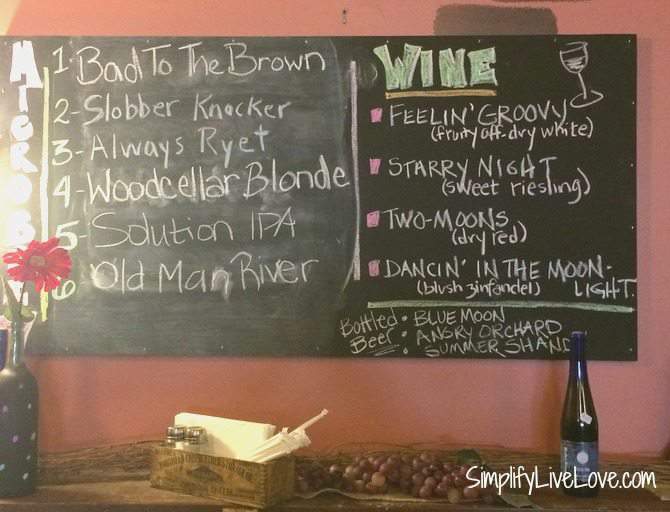 MICROB
1. Bad To The Brown
2- Slobber Knocker
3- Always Ryet
4- Woodcellar Blonde
5- Solution IPA
6 Old Man River
WINE
FEELIN' GROOVY
(fruity off-dry white)
STARRY NIGHT
(sweet riesling)
TWO-MOONS
(dry red)
DANCIN' IN THE MOON-
(blush zinfandel) LIGHT
Bottled Beer: • BLUE MOON
• ANGRY ORCHARD
• SUMMER SHAND
SimplifyLiveLove.com